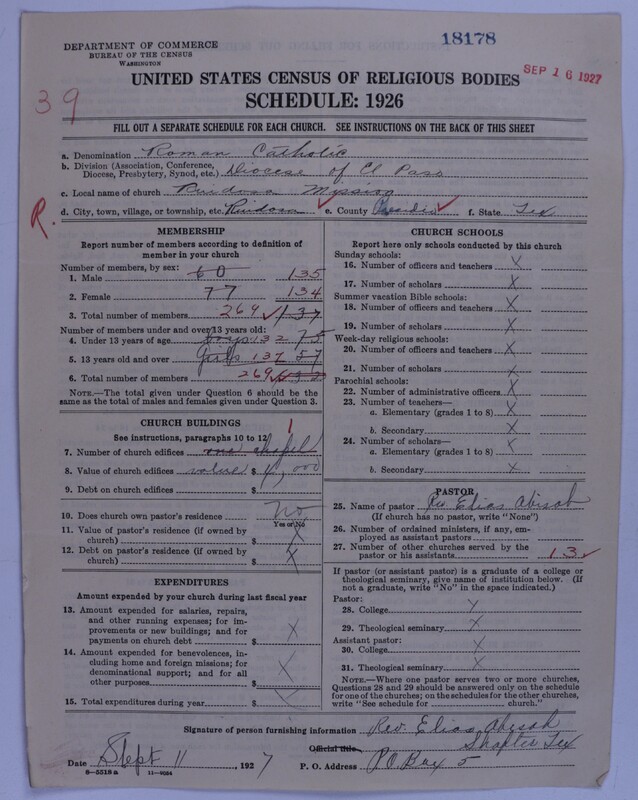 18178
DEPARTMENT OF COMMERCE
BUREAU OF THE CENSUS
WASHINGTON
SEP 16 1927
UNITED STATES CENSUS OF RELIGIOUS BODIES
39
SCHEDULE: 1926
FILL OUT A SEPARATE SCHEDULE FOR EACH CHURCH. SEE INSTRUCTIONS ON THE BACK OF THIS SHEET
a. Denomination Roman Catholic
b. Division (Association, Conference, Diocese, Presbytery, Synod, etc.) Diocese of El Paso
c. Local name of church Ruidosa Mission
R.
d. City, town, village, or township, etc. Ruidosa e. County Presidio f. State Tex
MEMBERSHIP
Report number of members according to definition of
member in your church
Number of members, by sex:
1. Male 60 135
2. Female 77 134
3. Total number of members 269 137
Number of members under and over 13 years old:
4. Under 13 years of age boys 132 75
5. 13 years old and over Girls 137 57
6. Total number of members 269
NOTE.—The total given under Question 6 should be
same as the total of males and females given under Question 3.
CHURCH BUILDINGS
See instructions, paragraphs 10 to 12
7. Number of church edifices one chapel 1
8. Value of church edifices value $ 4,000
9. Debt on church edifices $
10. Does church own pastor's residence No
Yes or No
11. Value of pastor's residence (if owned by
church) $ X
12. Debt on pastor's residence (if owned by
church) $ X
EXPENDITURES
Amount expended by your church during last fiscal year
13. Amount expended for salaries, repairs,
and other running expenses; for im-
provements or new buildings; and for
payments on church debt $ X
14. Amount expended for benevolences, in-
cluding home and foreign missions; for
denominational support; and for all
other purposes $ X
15. Total expenditures during year $ X
CHURCH SCHOOLS
Report here only schools conducted by this church
Sunday schools:
16. Number of officers and teachers X
17. Number of scholars X
Summer vacation Bible schools:
18. Number of officers and teachers X
19. Number of scholars X
Week-day religious schools:
20. Number of officers and teachers X
21. Number of scholars X
Parochial schools:
22. Number of administrative officers X
23. Number of teachers—
a. Elementary (grades 1 to 8) X
b. Secondary X
24. Number of scholars—
a. Elementary (grades 1 to 8) X
b. Secondary X
PASTOR
25. Name of pastor Rev. Elias Abisah
(If church has no pastor, write "None")
26. Number of ordained ministers, if any, em-
ployed as assistant pastors
27. Number of other churches served by the
pastor or his assistants 13
If pastor (or assistant pastor) is a graduate of a college or
theological seminary, give name of institution below. (If
not a graduate, write "No" in the space indicated.)
Pastor:
28. College X
29. Theological seminary X
Assistant pastor:
30. College X
31. Theological seminary X
NOTE.—Where one pastor serves two or more churches,
Questions 28 and 29 should be answered only on the schedule
for one of the churches; on the schedules for the other churches,
write "See schedule for church."
Signature of person furnishing information Rev. Elias Abisah
Official title Shafter Tex
Date Sept 11, 1927 P. O. Address P.O Box 5
8-5518a 11-9034